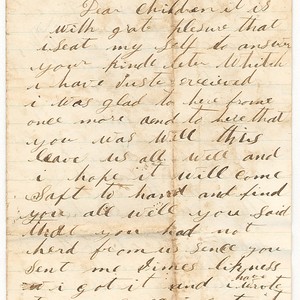 Dear Children it is
with grat plesure that
i seat my self to answer
your kinde leter Whitch
i have Juste recieved
i was glad to here frome
once more and to here that
you was well this
leave us all well and
i hope it will come
Saft to hand and find
you all will you said
that you had not
herd from us since you
sent me Jimes likness
i got it and i have wrote